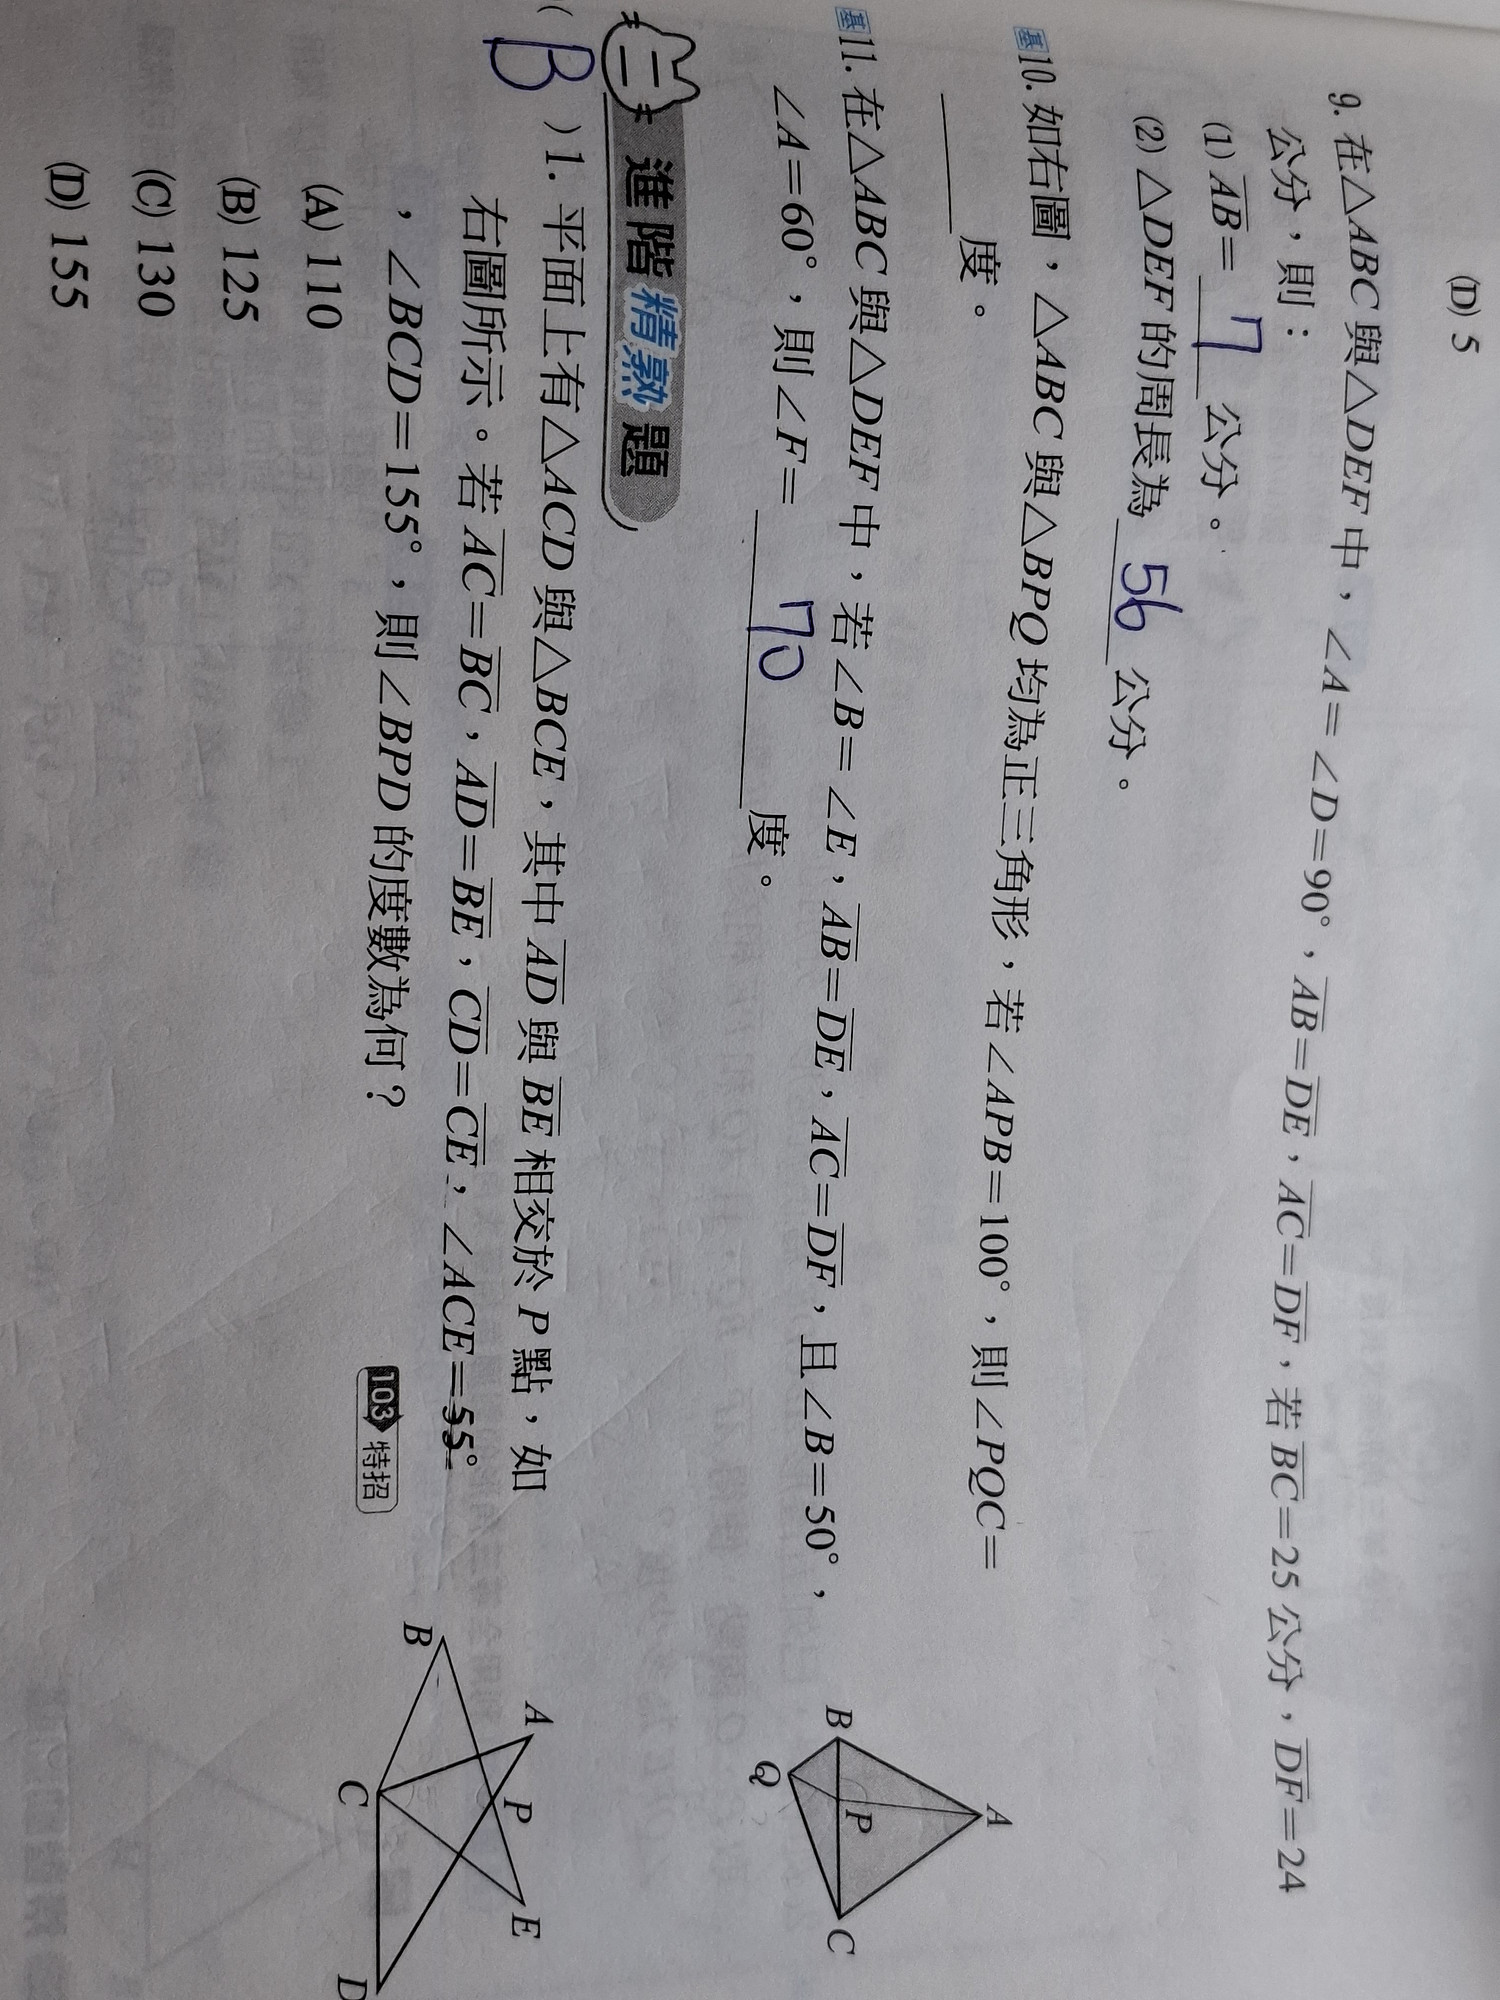 (D) 5
9. 在△ABC 與△DEF 中，∠A=∠D=90°，AB=DE，AC=DF，若 BC=25 公分，DF=24
公分，則：
(1) AB= 7 公分。
(2) △DEF 的周長為 56 公分。
基10. 如右圖，△ABC 與△BPQ 均為正三角形，若∠APB=100°，則∠PQC=
度。
A
B
P
C
Q
基11. 在△ABC 與△DEF 中，若∠B=∠E，AB=DE，AC=DF，且∠B=50°，
∠A=60°，則∠F= 70 度。
進階精熟題
( B ) 1. 平面上有△ACD 與△BCE，其中 AD 與 BE 相交於 P 點，如
右圖所示。若 AC=BC，AD=BE，CD=CE，∠ACE=55°
，∠BCD=155°，則∠BPD 的度數為何？
103 特招
(A) 110
(B) 125
(C) 130
(D) 155
A
P
E
B
C
D